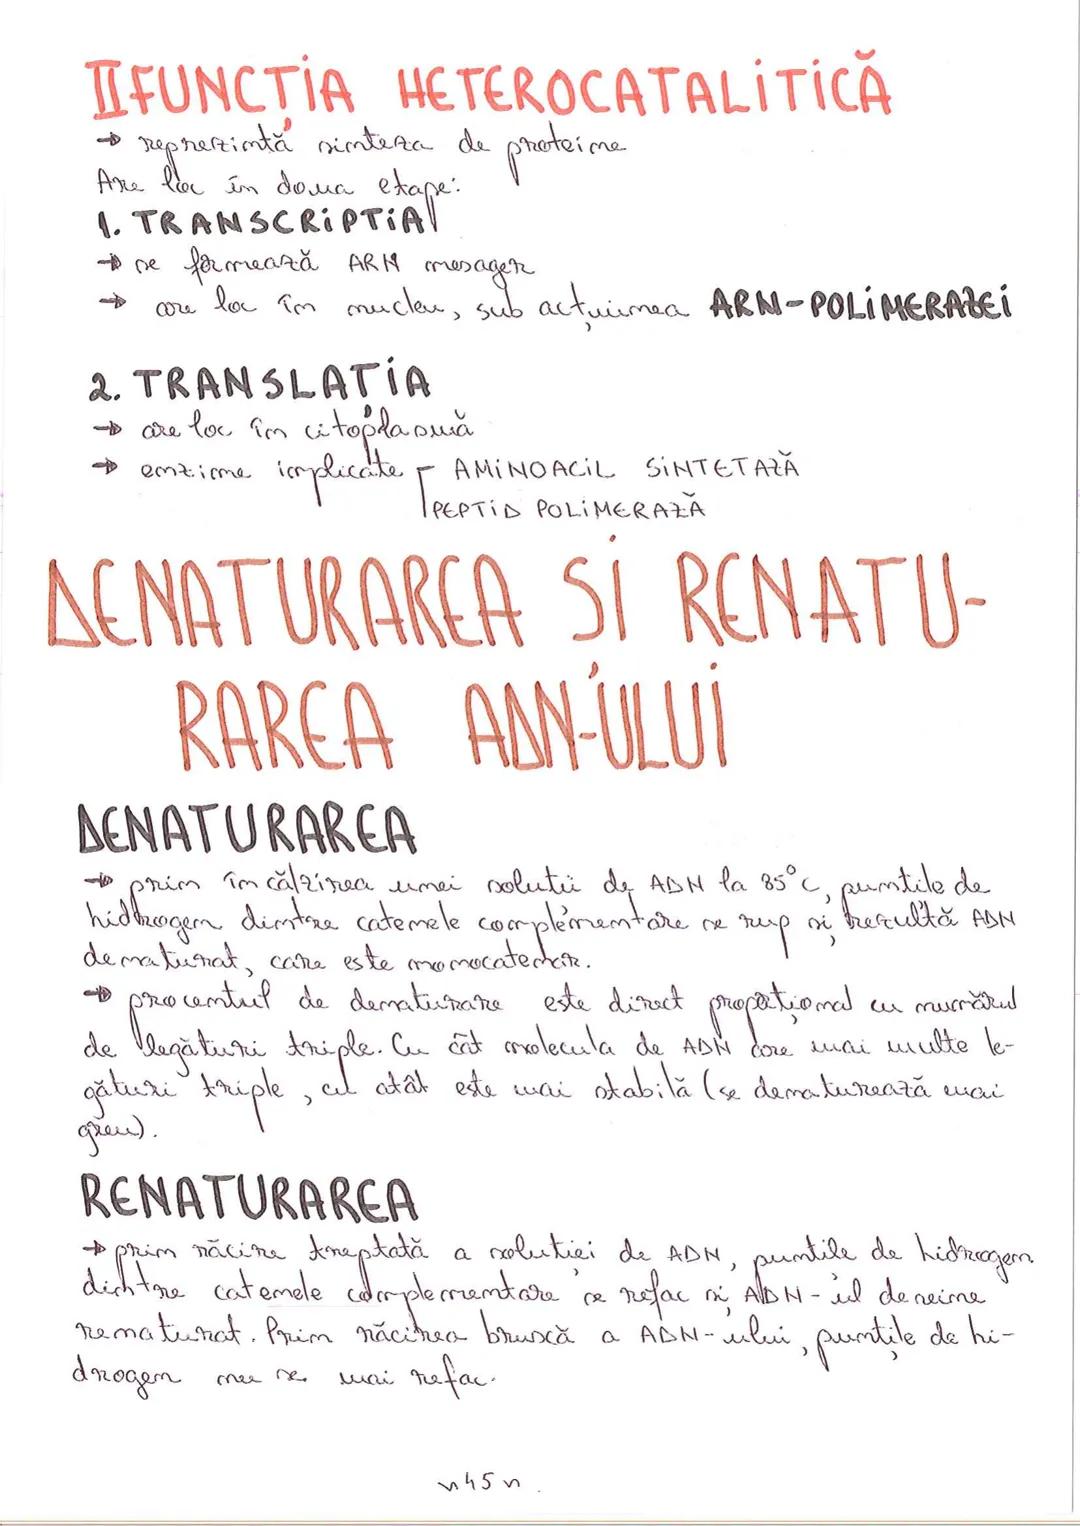 II FUNCȚIA HETEROCATALITICĂ
→ reprezintă sinteza de proteine
Are loc în doua etape:
1. TRANSCRIPTIA
→ se formează ARN mesager
→ are loc în nucleu, sub acțiunea ARN-POLIMERAZEI
2. TRANSLAȚIA
→ are loc în citoplasmă
→ enzime implicate AMINOACIL SINTETAZĂ
PEPTID POLIMERAZĂ
DENATURAREA SI RENATU-
RAREA ADN-ULUI
DENATURAREA
→ prin încălzirea unei solutii de ADN la 85°C, puntile de
hidrogen dintre catenele complementare se rup și rezultă ADN
denaturat, care este monocatenar.
→ procentul de denaturare este direct proporțional cu numărul
de legături triple. Cu cât molecula de ADN are mai multe le-
gături triple, cu atât este mai stabilă (se denaturează mai
greu).
RENATURAREA
→ prin răcire treptată a soluției de ADN, puntile de hidrogen
dintre catenele complementare se refac și ADN-ul devine
renaturat. Prin răcirea bruscă a ADN-ului, punțile de hi-
drogen nu se mai refac.
~45~